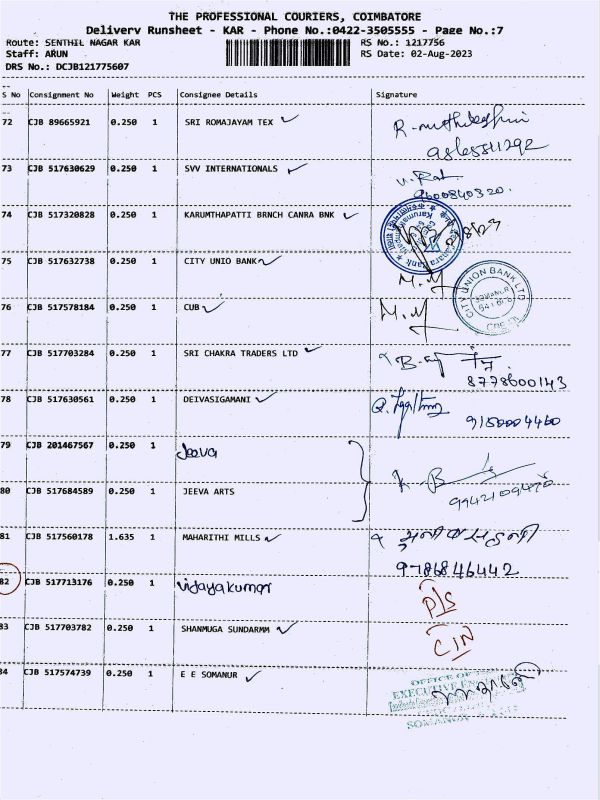 THE PROFESSIONAL COURIERS, COIMBATORE
Delivery Runsheet - KAR - Phone No.:0422-3505555 - Page No.:7
Route: SENTHIL NAGAR KAR RS No.: 1217756
Staff: ARUN RS Date: 02-Aug-2023
DRS No.: DCJB121775607
S No Consignment No Weight PCS Consignee Details Signature
72 CJB 89665921 0.250 1 SRI ROMAJAYAM TEX
73 CJB 517630629 0.250 1 SVV INTERNATIONALS
9600840320.
74 CJB 517320828 0.250 1 KARUMTHAPATTI BRNCH CANRA BNK
75 CJB 517632738 0.250 1 CITY UNIO BANK M.M
CITY UNION BANK LTD
SOMANUR
76 CJB 517578184 0.250 1 CUB M.M
77 CJB 517703284 0.250 1 SRI CHAKRA TRADERS LTD
8778600143
78 CJB 517630561 0.250 1 DEIVASIGAMANI
9150004460
79 CJB 201467567 0.250 1 Jeeva
80 CJB 517684589 0.250 1 JEEVA ARTS
81 CJB 517560178 1.635 1 MAHARITHI MILLS
9786846442
82 CJB 517713176 0.250 1 Vijayakumar P/S
83 CJB 517703782 0.250 1 SHANMUGA SUNDARMM C/N
84 CJB 517574739 0.250 1 E E SOMANUR
OFFICE OF THE
EXECUTIVE ENGINEER